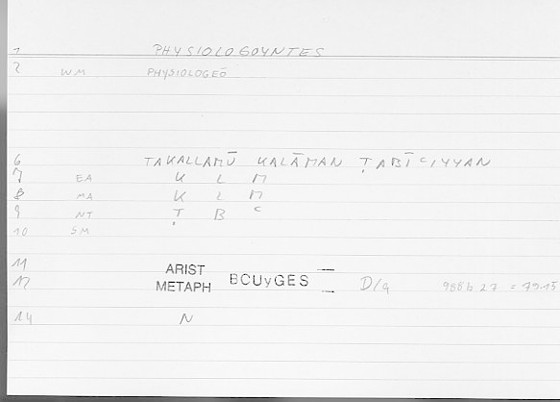 1 PHYSIOLOGOYNTES
2 WM PHYSIOLOGEŌ
6 TAKALLAMŪ KALĀMAN ṬABĪʿIYYAN
7 EA K L M
8 MA K L M
9 NT Ṭ B ʿ
10 SM
11 ARIST
12 METAPH BOUyGES D/a 988b27 = 79.15
14 N